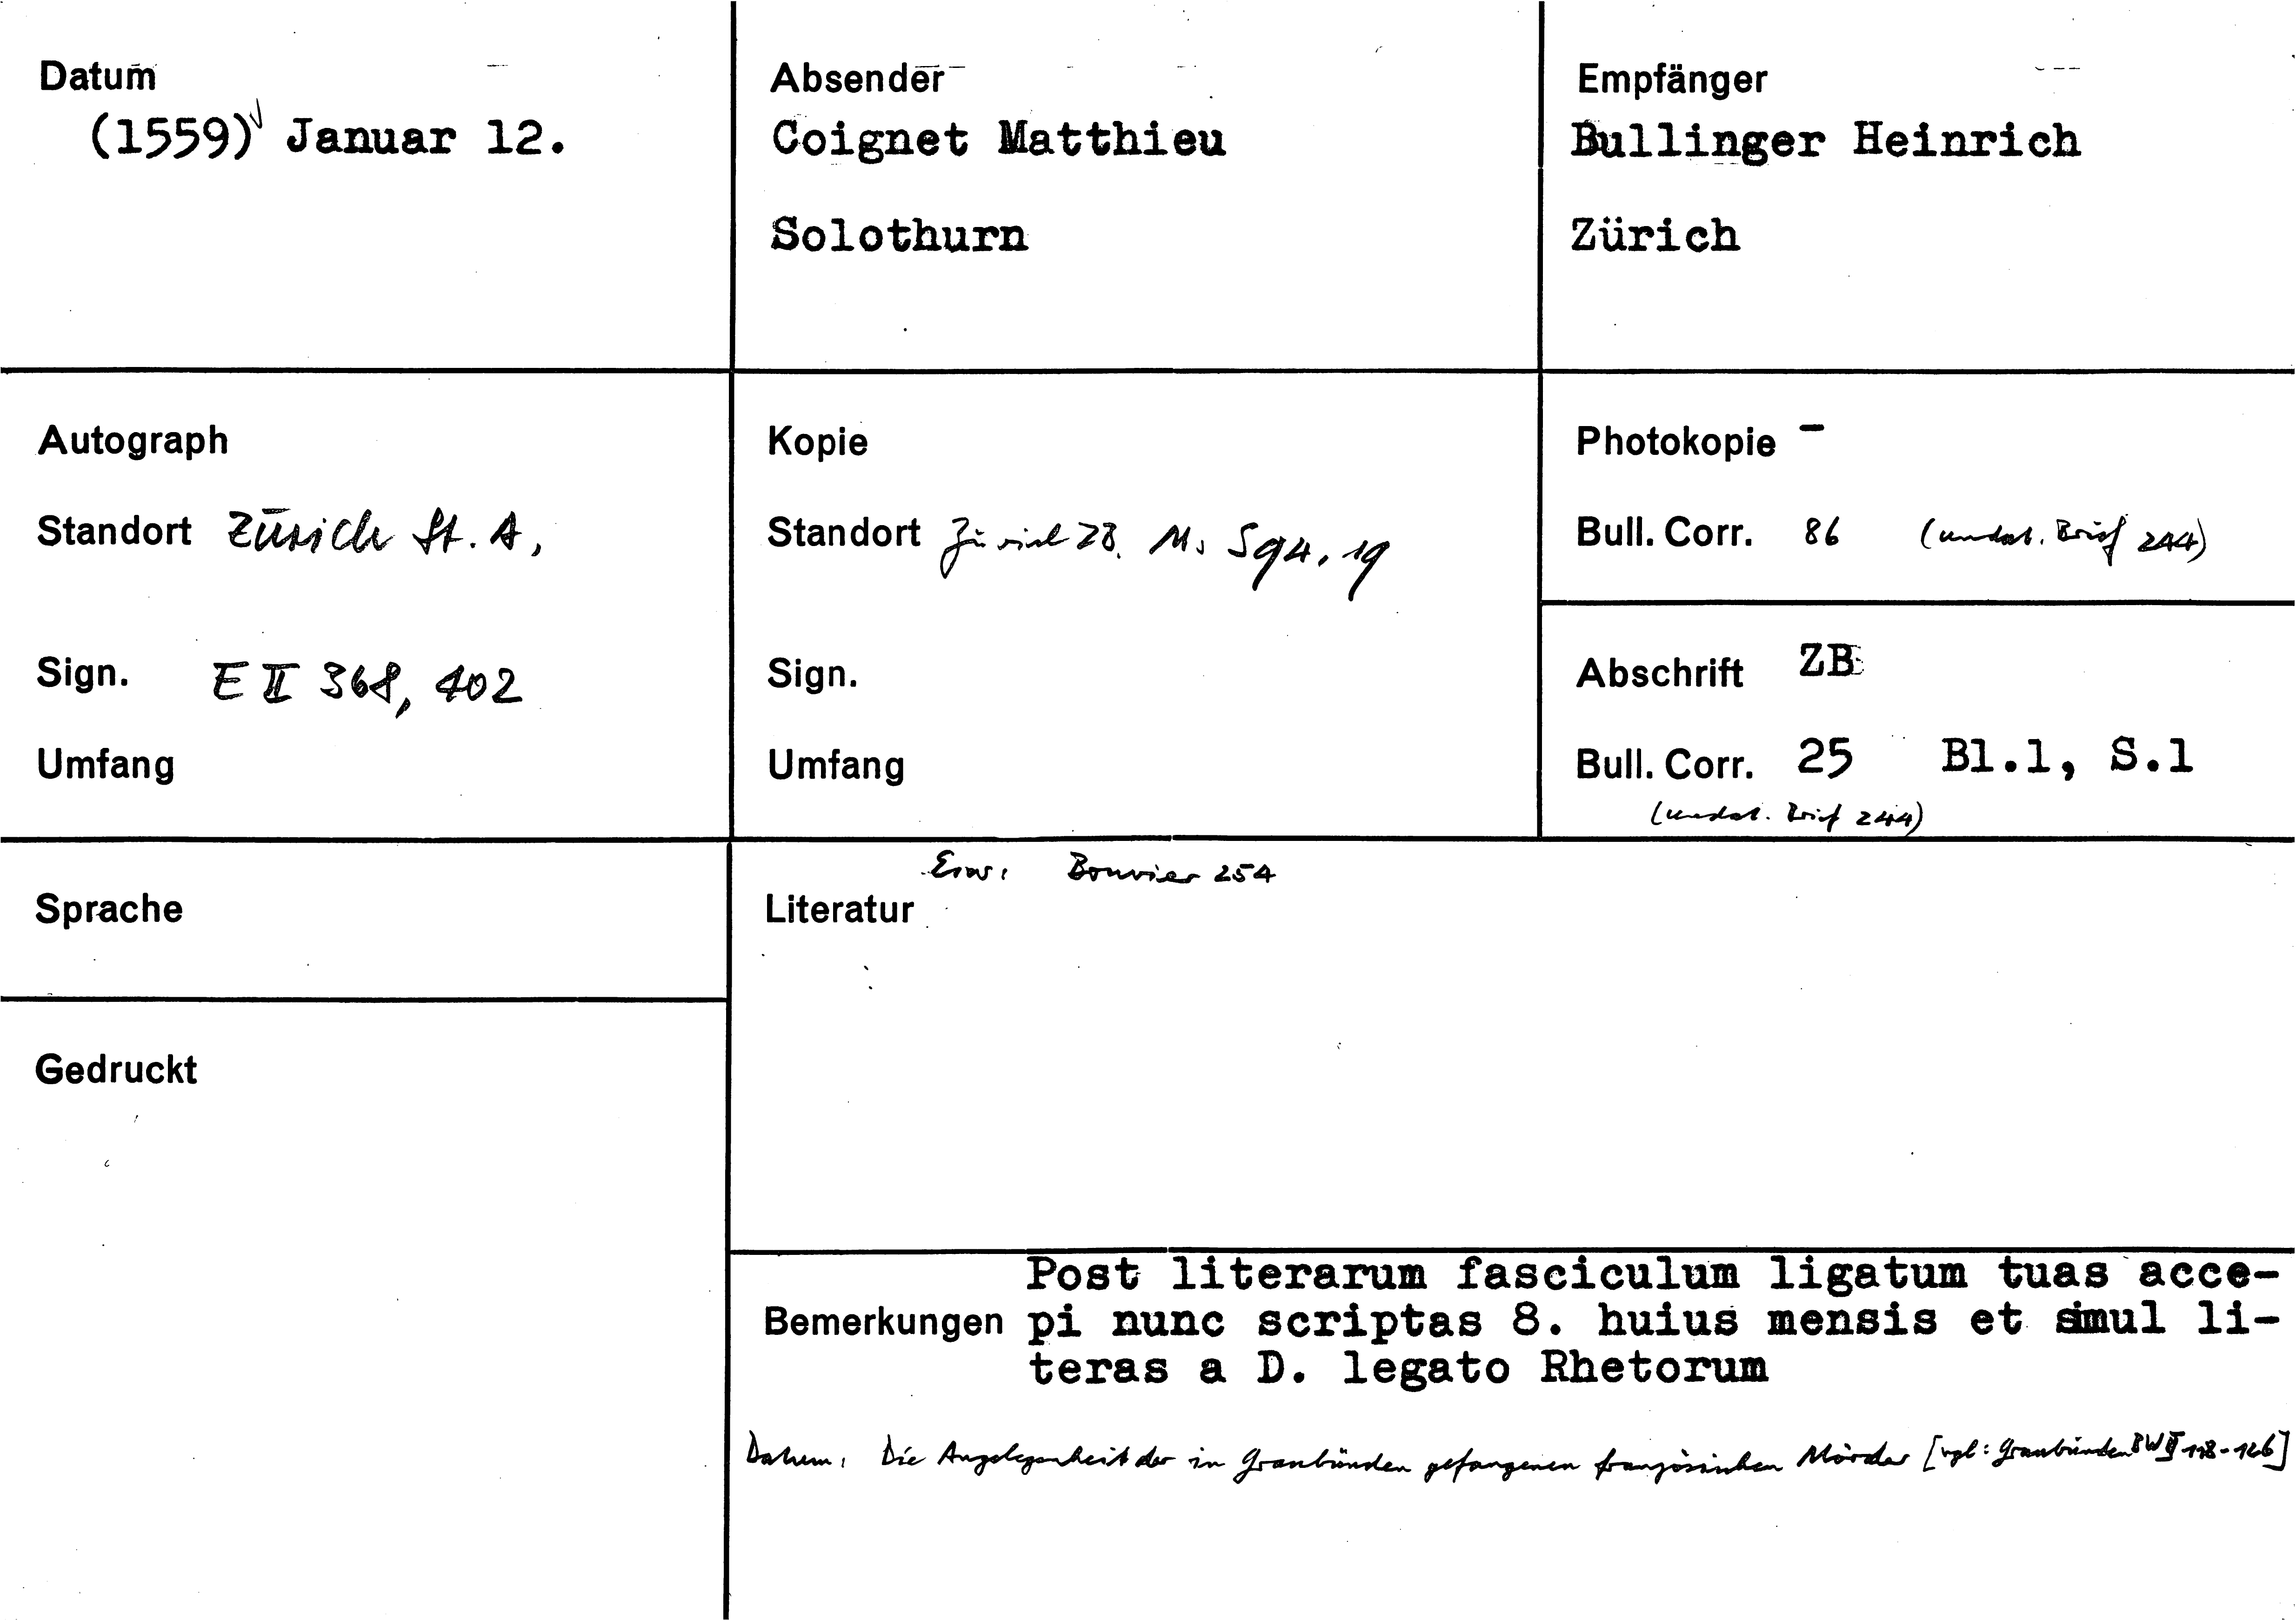 Datum
(1559) Januar 12.
Absender
Coignet Matthieu
Solothurn
Empfänger
Bullinger Heinrich
Zürich
Autograph
Standort Zürich St. A,
Sign. E II 368, 402
Umfang
Kopie
Standort Zürich ZB. Ms S 94, 19
Sign.
Umfang
Photokopie -
Bull. Corr. 86 (undat. Brief 244)
Abschrift ZB
Bull. Corr. 25 Bl.1, S.1
(undat. Brief 244)
Sprache
Gedruckt
Erw: Bouvier 254
Literatur
Post literarum fasciculum ligatum tuas acce-
Bemerkungen pi nunc scriptas 8. huius mensis et simul li-
teras a D. legato Rhetorum
Datum: Die Angelegenheit der in Graubünden gefangenen französischen Mörder [vgl: Graubünden BW II 118-126]